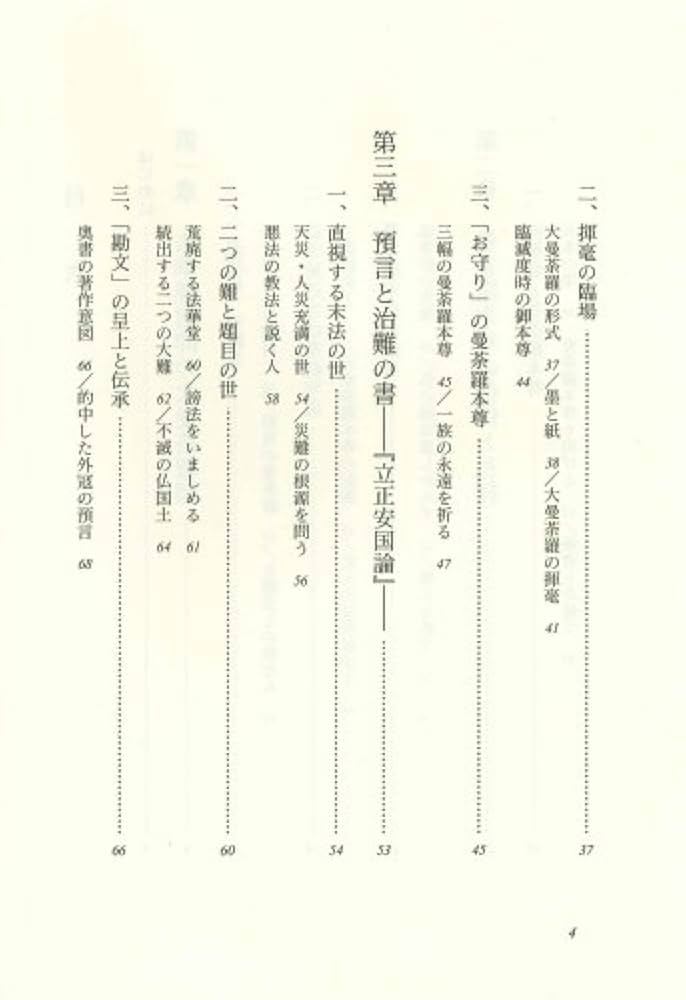 二、揮毫の臨場 37
大曼荼羅の形式 37／墨と紙 38／大曼荼羅の揮毫 41
臨滅度時の御本尊 44
三、「お守り」の曼荼羅本尊 45
三幅の曼荼羅本尊 45／一族の永遠を祈る 47
第三章 預言と治難の書――『立正安国論』―― 53
一、直視する末法の世 54
天災・人災充満の世 54／災難の根源を問う 56
悪法の教法と説く人 58
二、二つの難と題目の世 60
荒廃する法華堂 60／謗法をいましめる 61
続出する二つの大難 62／不滅の仏国土 64
三、「勘文」の呈上と伝承 66
奥書の著作意図 66／的中した外冦の預言 68
4